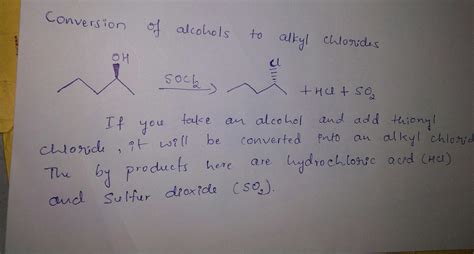 Conversion of alcohols to alkyl chlorides
OH
Cl
SOCl2
+ HCl + SO2
If you take an alcohol and add thionyl
chloride, it will be converted into an alkyl chlorid
The by products here are hydrochloric acid (HCl)
and Sulfur dioxide (SO2).